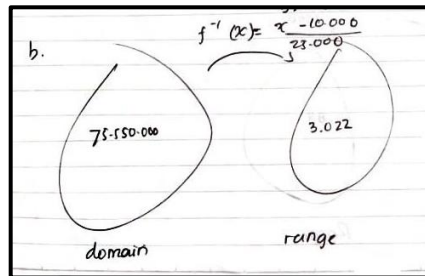 f⁻¹(x) = x - 10.000
23.000
b.
75.550.000
3.022
domain
range